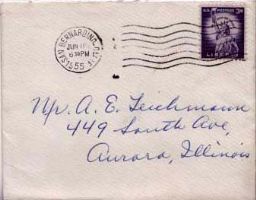 SAN BERNARDINO, CALIF.
JUN
6 PM
1955
U.S. POSTAGE 3¢
LIBERTY
Mr. A. E. Teichmann
449 South Ave,
Aurora, Illinois